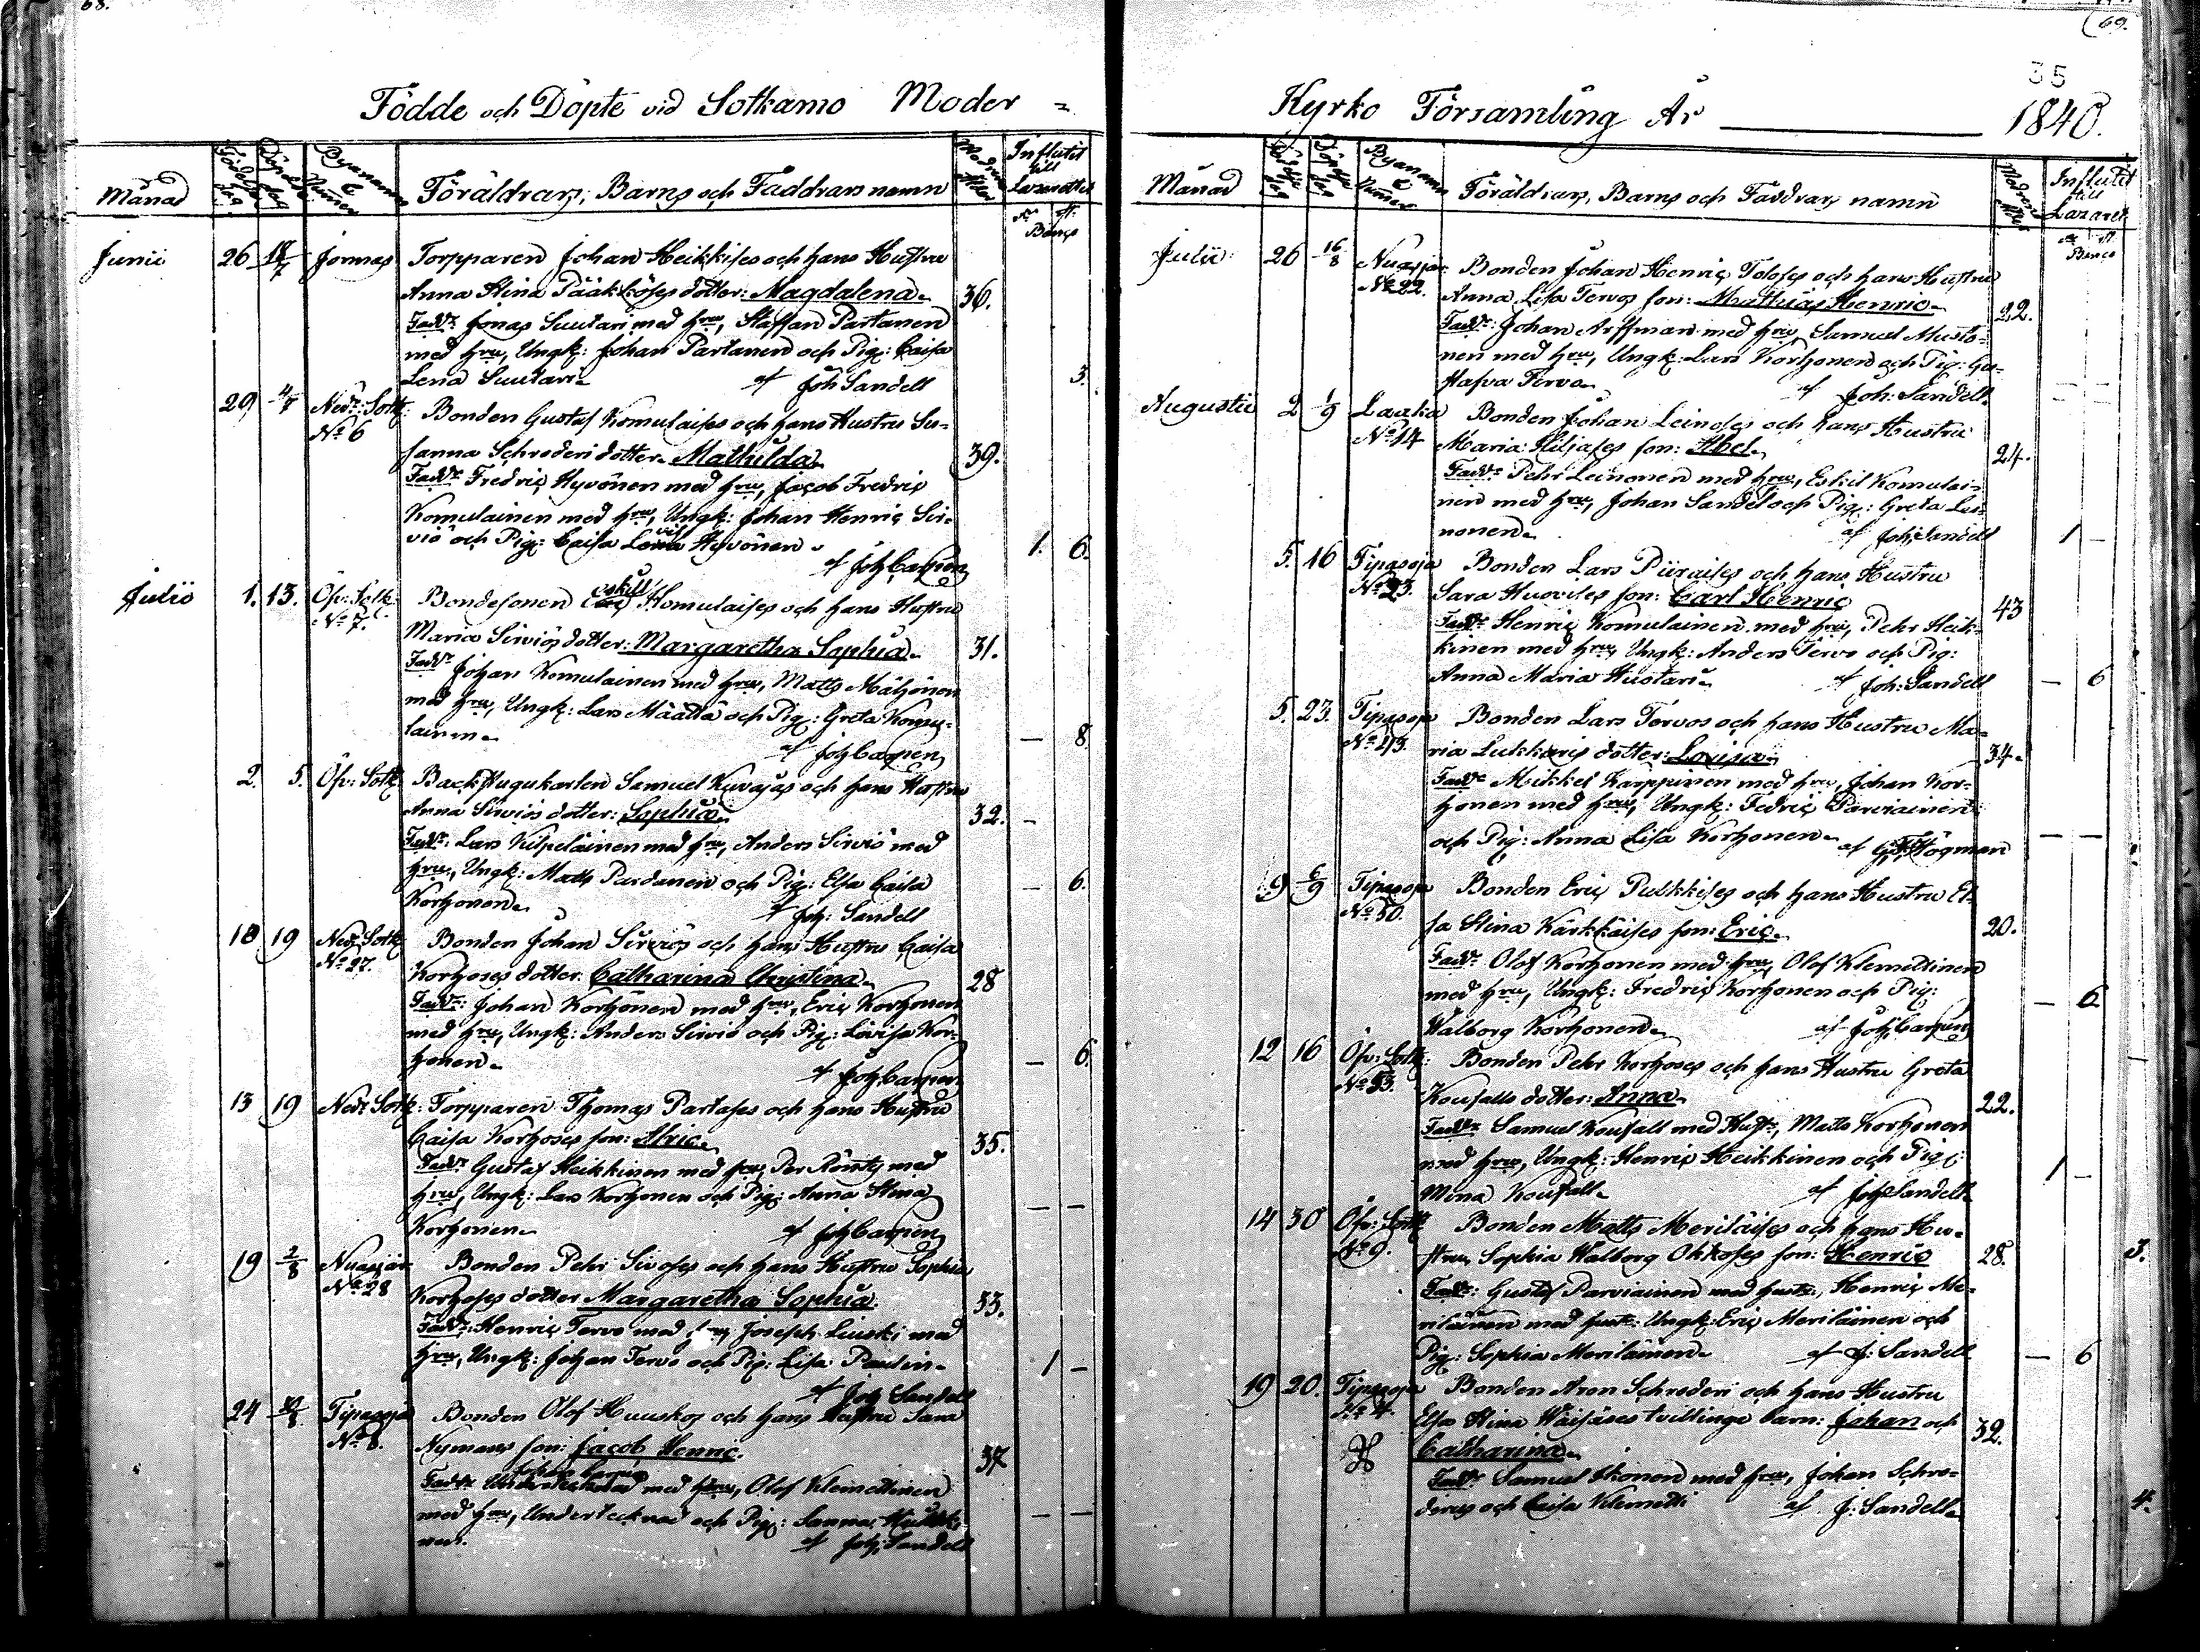 68.
Födde och Döpte vid Sotkamo Moder =
Månad
Födelse dag
Döpelse dag
Byanamn & Numer
Föräldrars, Barns och Faddrars namn
Modrens Ålder
Influtit till Lazarettet
Banco
Junii 26 Jormas Torpparen Johan Heikkises och hans Hustru
Anna Stina Pääkköses dotter: Magdalena. 36.
Faddr Jonas Suutari med hru, Staffan Partanen
med hru, Ungk: Johan Partanen och Pig: Caisa
Lena Suutari. af Joh Sandell 3.
29 Nedr: Sotk: Bonden Gustaf Komulaises och hans Hustru Su-
No 6
sanna Schroderi dotter. Mathilda. 39.
Faddr Fredric Hyvönen med hru, Jacob Fredric
Komulainen med hru, Ungk: Johan Henric Sir-
viö och Pig: Caisa Hyvönen. 1. 6.
af Joh Cajsen
Julii 1. 13. Öfv: Sotk: Bondesonen Eskill Komulaises och hans Hustru
No 7.
Maria Sirviös dotter: Margaretha Sophia. 31.
Faddr Johan Komulainen med hru, Matts Mähönen
med hru, Ungk: Lars Määttä och Pig: Greta Komu-
lainen. — 8
2. 5. Öfv: Sotk: Backstugukarlen Samuel Kuvajas och hans Hustru
Anna Sirviös dotter: Sophia. 32.
Faddr: Lars Kilpeläinen med hru, Anders Sirviö med
hru, Ungk: Matts Pardanen och Pig: Elsa Caisa — 6.
Korhonen. af Joh: Sandell
18 19 Nedr Sotk Bonden Johan Sirviös och hans Hustru Caisa
No 27.
Korhoses dotter. Catharina Christina. 28
Faddr: Johan Korhonen med hru, Eric Korhonen
med hru, Ungk: Anders Sirviö och Pig: Lovisa Kor-
honen. — 6.
13 19 Nedr Sotk: Torpparen Thomas Partases och hans Hustru
Caisa Korhoses son: Alric. 35.
Faddr Gustaf Heikkinen med hru, Per Rönty med
hru, Ungk: Lars Korhonen och Pig: Anna Stina
Korhonen. — —
19 2/8 Nuasjär Bonden Pehr Sivoses och hans Hustru Sophia
No 28
Korhoses dotter Margaretha Sophia. 33.
Faddr: Henric Tervo med hru, Joseph Liuski med
hru, Ungk: Johan Tervo och Pig: Lisa Paulin. 1 —
af Joh Sandell
24 Tipasoja Bonden Olof Huuskos och hans Hustru Sara
No 8.
Nymans son: Jacob Henric. 37
Faddr med hru, Olof Klemettinen
med hru, Undertecknad och Pig: Sanna — —
af Joh: Sandell
69.
35
Kyrko Församling År 1840.
Månad
Födelse dag
Döpelse dag
Byanamn & Numer
Föräldrars, Barns och Faddrars namn
Modrens Ålder
Influtit till Lazaret
Banco
Julii 26 16/8 Nuasjär Bonden Johan Henric Toloses och hans Hustru
No 22.
Anna Lisa Tervos son: Mathias Henric. 22.
Faddr: Johan Arffman med hru, Samuel Musto-
nen med hru, Ungk: Lars Korhonen och Pig: Gu-
stafva Tervo. af Joh: Sandell.
Augusti 2 1/9 Laakia Bonden Johan Leinoses och hans Hustru
No 14
Maria Kiljases son: Abel. 24.
Faddr Pehr Leinonen med hru, Eskil Komulai-
nen med hru, Johan Sandel och Pig: Greta Lei-
nonen. af Joh: Sandell 1 —
5. 16 Tipasoja Bonden Lars Piiraises och hans Hustru
No 23.
Sara Huovises son: Carl Henric 43
Faddr Henric Komulainen med hru, Pehr Heik-
kinen med hru, Ungk: Anders Tervo och Pig:
Anna Maria Kustari. af Joh: Sandell — 6
5. 23. Tipasoja Bonden Lars Tervos och hans Hustru Ma-
No 43.
ria Lukkaris dotter: Lovisa. 34.
Faddr Mickel Karppinen med hru, Johan Kor-
honen med hru, Ungk: Fedric Parviainen
och Pig: Anna Lisa Korhonen. af Högman — —
9 6/9 Tipasoja Bonden Eric Pulkkises och hans Hustru El-
No 50.
sa Stina Kärkkäises son: Eric. 20.
Faddr Olof Korhonen med hru, Olof Klemettinen
med hru, Ungk: Fredric Korhonen och Pig: — 6
Walborg Korhonen.
12 16 Öfv: Sotk: Bonden Pehr Korhoses och hans Hustru Greta
No 33.
Kousalls dotter: Anna. 22.
Faddr Samuel Kousall med Hust, Matts Korhonen
med hru, Ungk: Henric Heikkinen och Pig: 1 —
Mina Kousall. af Joh: Sandell.
14 30 Öfv: Sotk Bonden Matts Meriläises och hans Hu-
No 9.
stru Sophia Walborg Okkoses son: Henric 28. 3.
Faddr: Gustaf Parviainen med hust:, Henric Me-
riläinen med hust: Ungk: Eric Meriläinen och
Pig: Sophia Meriläinen. af J: Sandell — 6
19 20. Tipasoja Bonden Aron Schroderi och hans Hustru
No 4.
Elsa Stina Wäisäses tvillinge barn: Johan och 32.
Catharina.
Faddr Samuel Ikonen med hru, Johan Schro-
derus och Caisa Klemetti af J: Sandell. 4.